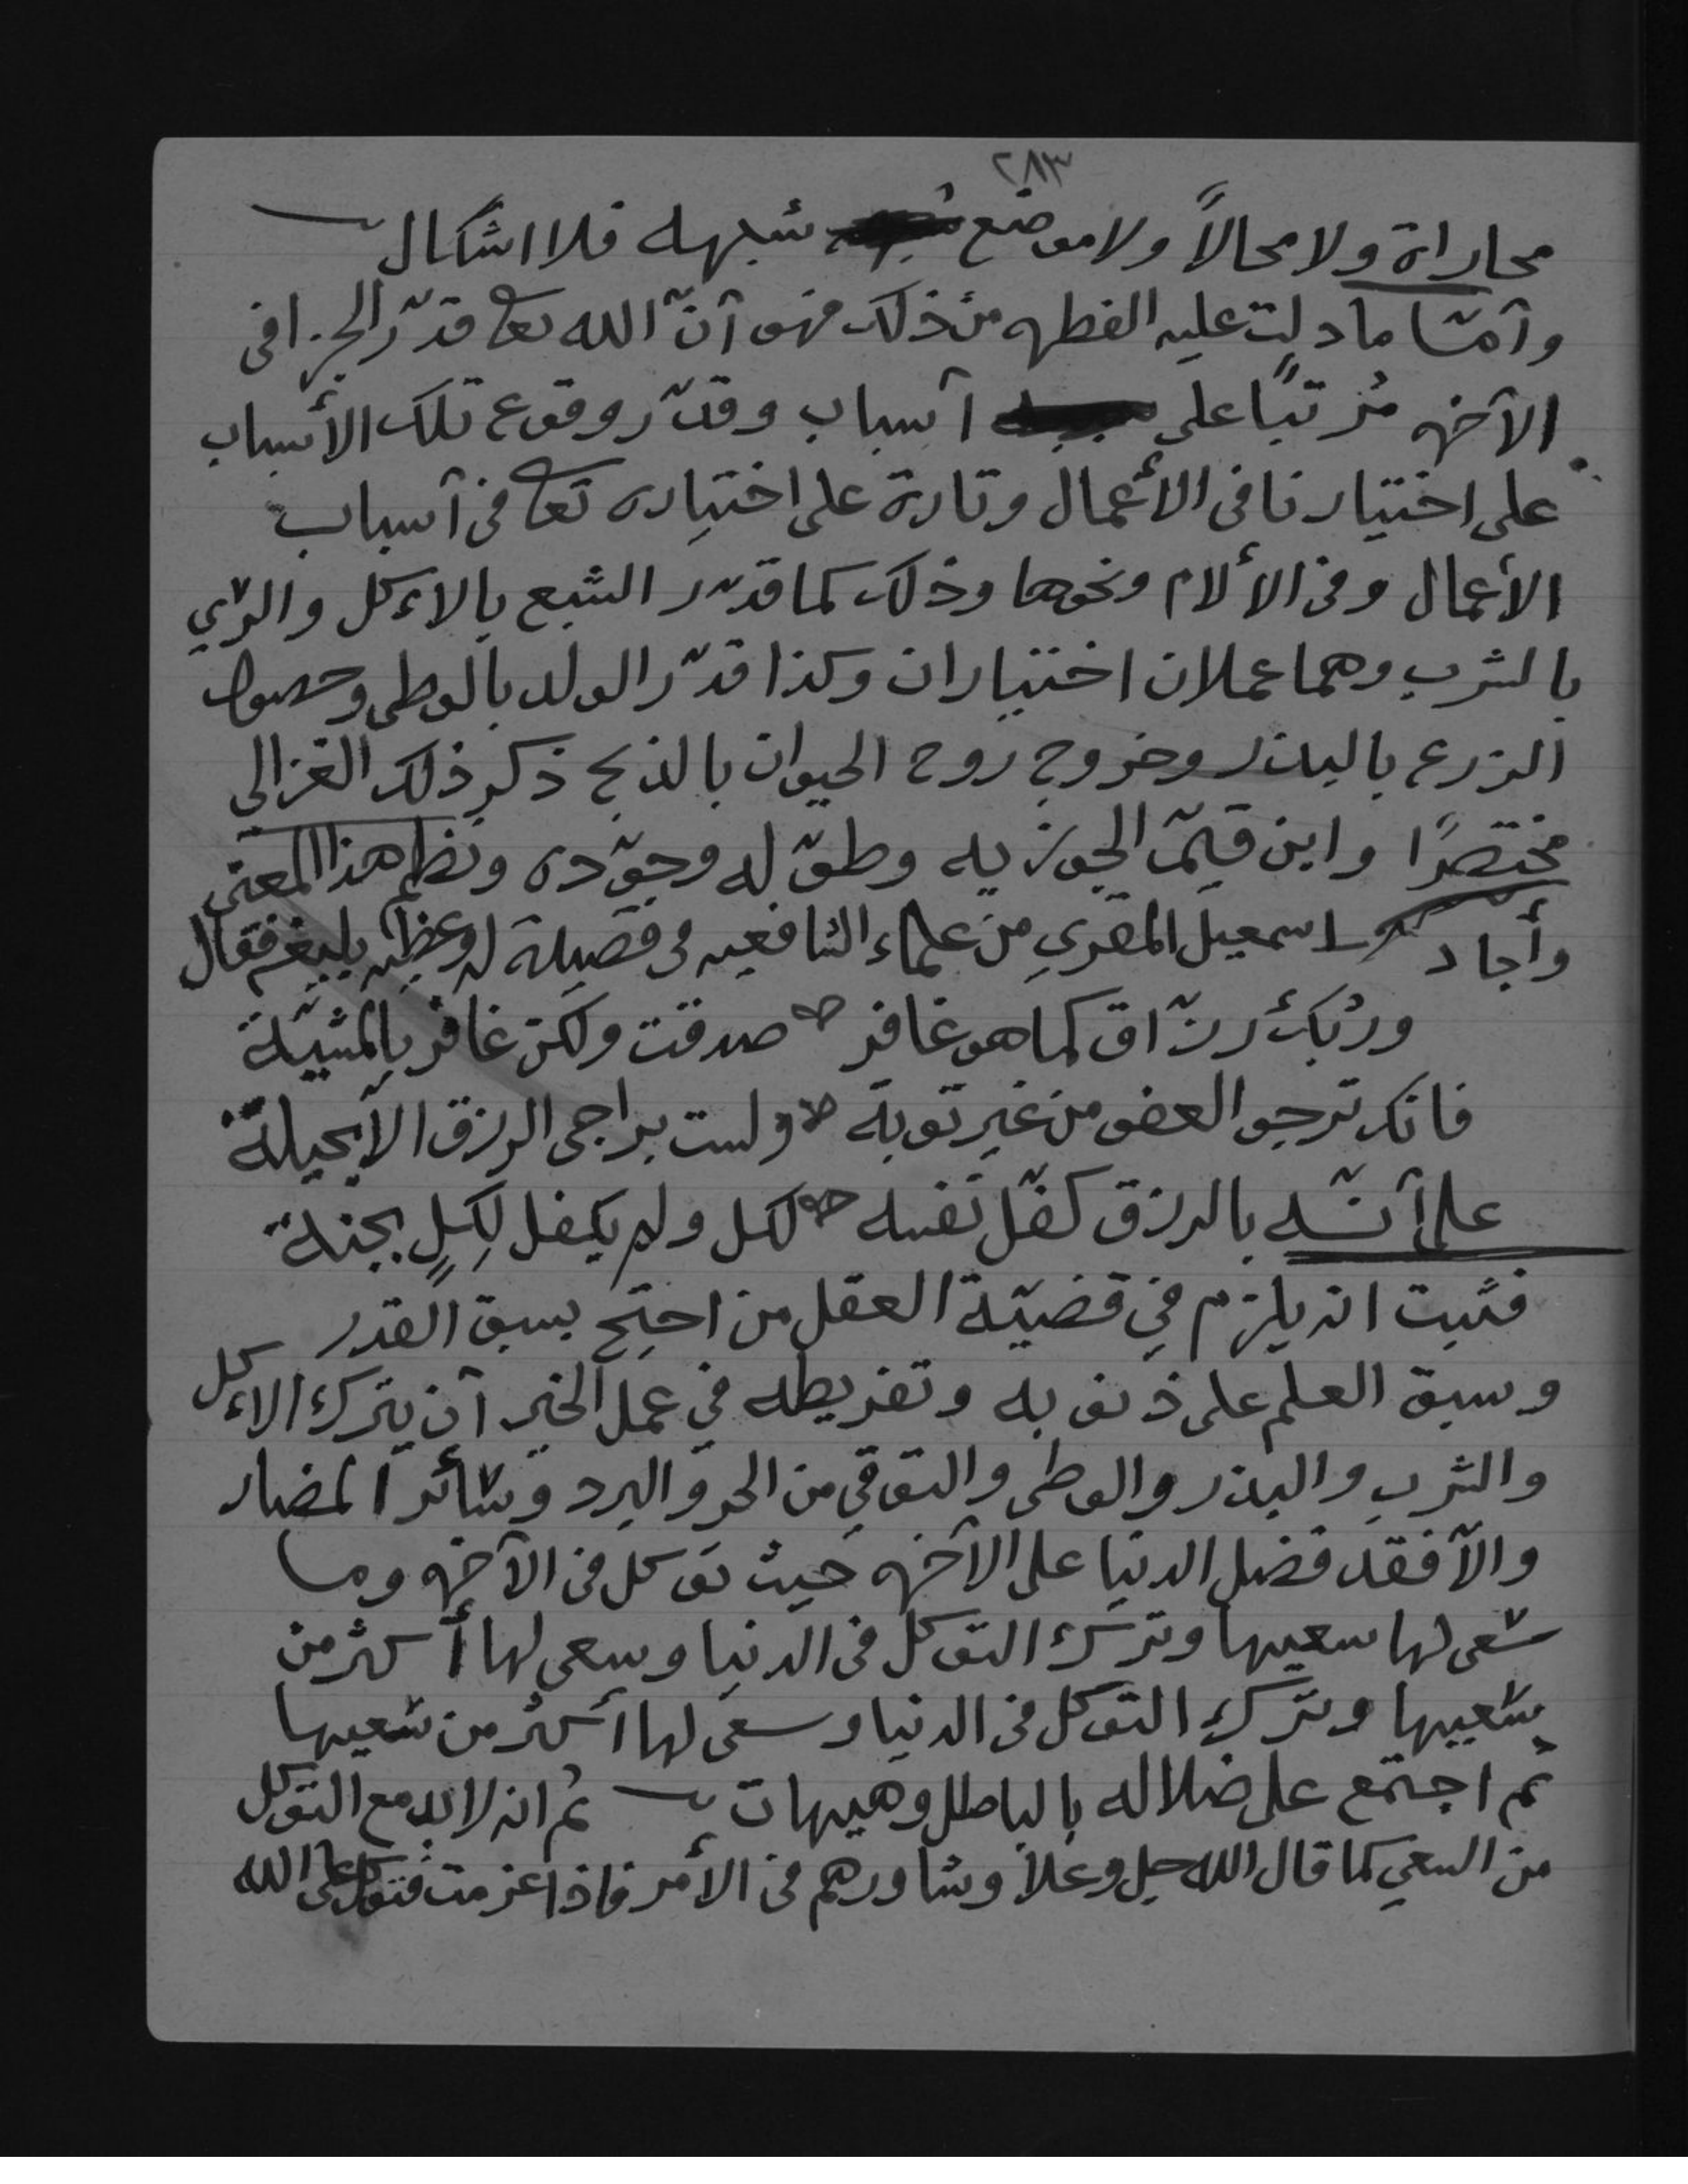 ٢٨٣
محاراة ولا محالاً ولا موضع شبهه فلا اشكال
وأمّا ما دلت عليه الفطره من ذلك فهو أنّ الله تعا قدّر الجزا فى
الآخره مُرتبًا على أسباب وقدّر وقوع تلك الأسباب
على اختيارنا فى الأعمال وتارة على اختياره تعا فى أسباب
الأعمال وفى الألام ونحوها وذلك كما قدّر الشبع بالاءكل والرّي
بالشرب وهما عملان اختياران وكذا قدّر الولد بالوطى وحصول
الزرع بالبذر وخروج روح الحيوان بالذبح ذكر ذلك الغزالى
مختصرًا وابن قيّم الجوزيه وطوّله وجوّده ونظم هذا المعنى
وأجاد اسمعيل المقري من علماء الشافعيه فى قصيدة له وعظيه بليغه فقال
وربّك رزّاق كما هو غافر صدقت ولكن غافر بالمشيّة
فانك ترجو العفو من غير توبة ولست براجى الرزق الا بحيلة
على أنّه بالرزق كفّل نفسه لكل ولم يكفل لِكلٍ بجنة
فثبت انه يلزم في قضيّة العقل من احتج بسبق القدر
وسبق العلم على ذنوبه وتفريطه في عمل الخير أن يترك الاءكل
والشرب والبذر والوطى والتوقي من الحر والبرد وسائر المضار
والاّ فقد فضل الدنيا على الآخره حيث توكل فى الآخره وما
سعى لها سعيها وترك التوكل فى الدنيا وسعى لها أكثر من
سعيها وترك التوكل فى الدنيا وسعى لها أكثر من سعيها
ثم اجتمع على ضلاله بالباطل وهيهات ثم انه لابد مع التوكل
من السعي كما قال الله جل وعلا وشاورهم فى الأمر فاذا عزمت فتوكل على الله